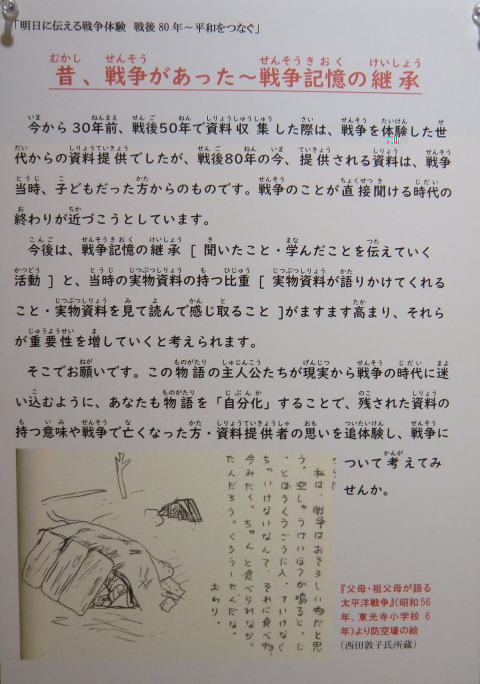 「明日に伝える戦争体験 戦後80年～平和をつなぐ」
昔、戦争があった～戦争記憶の継承
今から30年前、戦後50年で資料収集した際は、戦争を体験した世
代からの資料提供でしたが、戦後80年の今、提供される資料は、戦争
当時、子どもだった方からのものです。戦争のことが直接聞ける時代の
終わりが近づこうとしています。
今後は、戦争記憶の継承［聞いたこと・学んだことを伝えていく
活動］と、当時の実物資料の持つ比重［実物資料が語りかけてくれる
こと・実物資料を見て読んで感じ取ること］がますます高まり、それら
が重要性を増していくと考えられます。
そこでお願いです。この物語の主人公たちが現実から戦争の時代に迷
い込むように、あなたも物語を「自分化」することで、残された資料の
持つ意味や戦争で亡くなった方・資料提供者の思いを追体験し、戦争に
ついて考えてみ
せんか。
私は、戦争はおそろしい物だと思
う。空しゅうけいほうが鳴ると、じ
っとぼうくうごうに入っていけなく
ちゃいけないなんて、それに食べ物
今みたく、ちゃんと食べられなか
たんだろう。くろうしたんだな。
おわり。
『父母・祖父母が語る
太平洋戦争』(昭和56
年、東光寺小学校6
年)より防空壕の絵
(西田敦子氏所蔵)